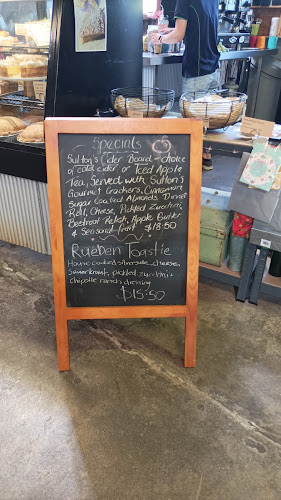 Specials
Sutton's Cider Board - choice
of cold cider or Iced Apple
Tea, Served with Sutton's
Gourmet Crackers, Cinnamon
Sugar Coated Almonds, Dinner
Roll, Cheese, Pickled Zucchini,
Beetroot Relish, Apple Butter
& Seasonal fruit $18.50
Rueben Toastie
House cooked silverside, cheese,
Sauerkraut, pickled zucchini &
chipotle ranch dressing
$15.50